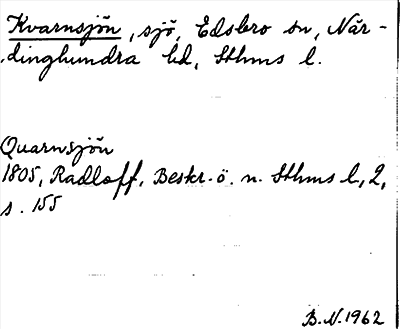 Kvarnsjön, sjö, Edsbro sn, När-
dinghundra hd, Sthms l.
Quarnsjön
1805, Radloff, Beskr. ö. n. Sthms l, 2,
s. 155
B.N. 1962